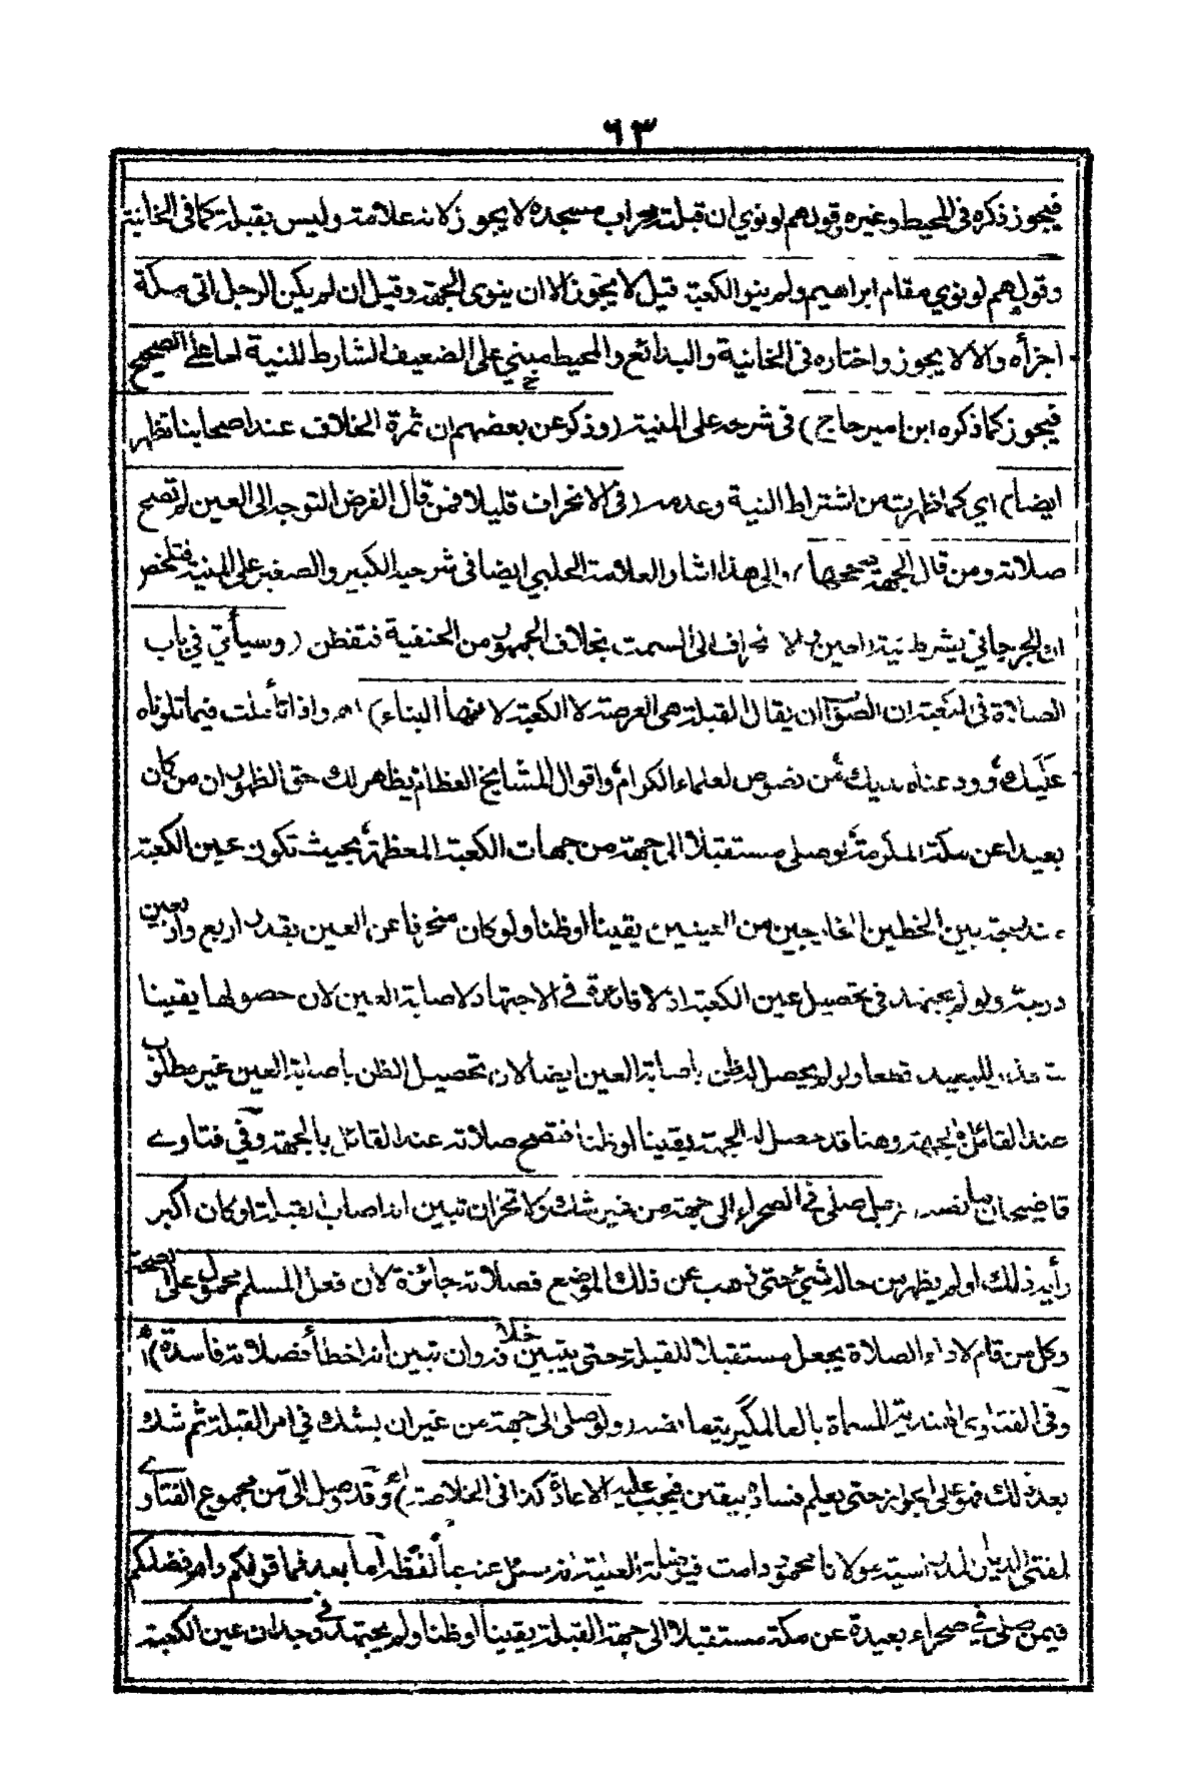 ٦٣
فيجوز ذكره في المحيط وغيره وقولهم لو نوي ان قبلته محراب مسجده لا يجوز لانه علامته وليس بقبلته كما في الخانية
وقولهم لو نوي مقام ابراهيم ولم ينو الكعبة قيل لا يجوز الا ان ينوى الجهة وقيل ان لم يكن الرجل اتى مكة
اجزأه والا لا يجوز واختاره في الخانية والبدائع والمحيط مبني على الضعيف الشارط للنية اما على الصحيح
فيجوز كما ذكره ابن امير حاج) في شرحه على المنية (وذكر عن بعضهم ان ثمرة الخلاف عند اصحابنا تظهر
ايضا) اي كما ظهرت من اشتراط النية وعدمه (في الانحراف قليلا فمن قال الفرض التوجه الى العين لم تصح
صلاته ومن قال الجهة يصححها) والى هذا اشار العلامة الحلبي ايضا في شرحيه الكبير والصغير على المنية فتلخص
ان الجرجاني يشرط نية العين ولا انحراف الى السمت بخلاف الجمهور من الحنفية فتفطن (وسيأتي في باب
الصلاة في الكعبة ان الصواب ان يقال القبلة هي العرصة لا الكعبة لانها البناء) اه واذا تأملت فيما تلوناه
عليك وودعناه لديك من نصوص العلماء الكرام واقوال المشايخ العظام يظهر لك حق الظهور ان من كان
بعيدا عن مكة المكرمة لو صلى مستقبلا الى جهة من جهات الكعبة المعظمة بحيث تكون عين الكعبة
مندمجة بين الخطين الخارجين من العينين يقينا او ظنا ولو كان منحرفا عن العين بقدر اربع واربعين
درجة ولو لم يجتهد في تحصيل عين الكعبة اذ لا فائدة في الاجتهاد لاصابة العين لان حصولها يقينا
متعذر للبعيد قطعا ولو لم يحصل الظن باصابة العين ايضا لان تحصيل الظن باصابة العين غير مطلوب
عند القائل بالجهة وهنا قد حصل له الجهة يقينا او ظنا فتصح صلاته عند القائل بالجهة وفي فتاوے
قاضيخان ما نصه رجل صلى في الصحراء الى جهة من غير شك ولا تحر ان تبين انه اصاب القبلة او كان اكبر
رأيه ذلك او لم يظهر من حاله شيئ حتى ذهب عن ذلك الموضع فصلاته جائزة لان فعل المسلم محمول على الصحة
وكل من قام لاداء الصلاة يجعل مستقبلا للقبلة حتى يتبين خلافه وان تبين انه اخطأ فصلاته فاسدة) اه
وفي الفتاوى الهندية المسماة بالعالمگيرية ما نصه ولو صلى الى جهة من غير ان يشك في امر القبلة ثم شك
بعد ذلك فهو على الجواز حتى يعلم فساده بيقين فيجب عليه الاعادة كذا في الخلاصة) اه وقد وصل الى من مجموع الفتاوے
لمفتى مولانا محمود دامت انه سئل عنه بما لفظه اما بعد فما قولكم دام فضلكم
فيمن صلى في صحراء بعيدة عن مكة مستقبلا الى جهة القبلة يقينا او ظنا ولم يجتهد في وجدان عين الكعبة